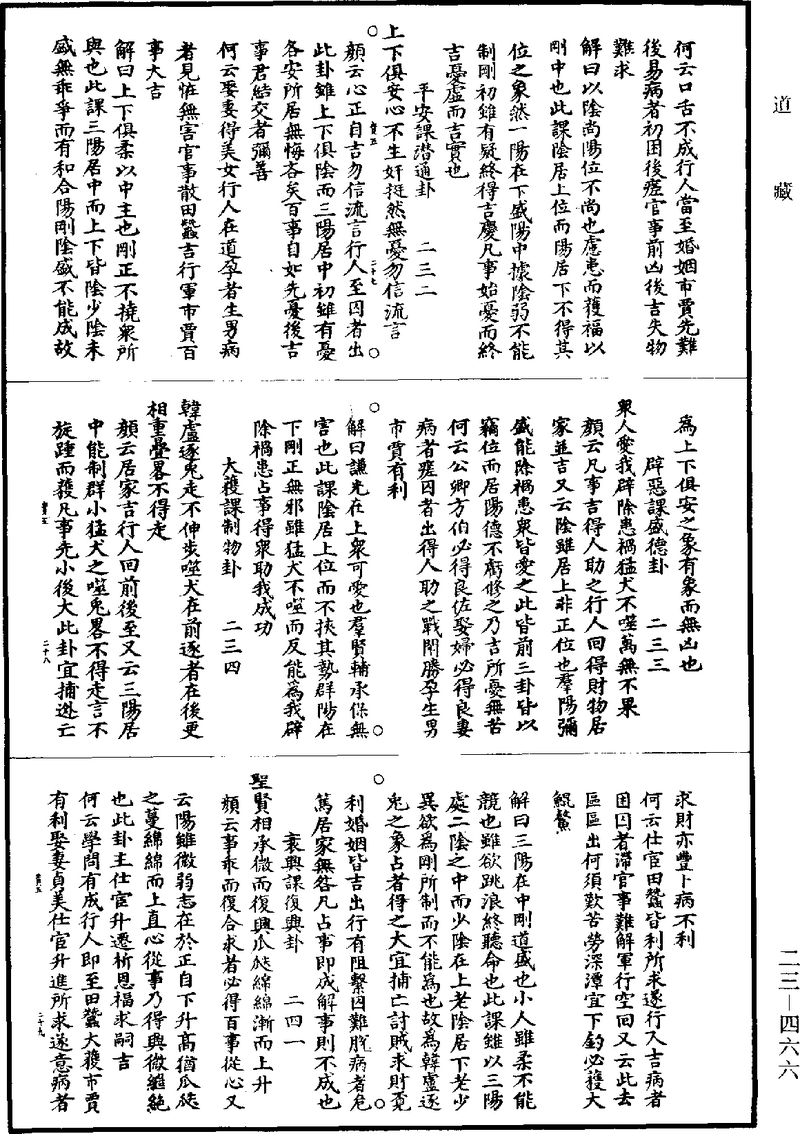 道藏
何云口舌不成行人當至婚姻市賈先難
後易病者初困後瘥官事前凶後吉失物
難求
解曰以陰尚陽位不尚也慮患而獲福以
剛中也此課陰居上位而陽居下不得其
位之象然一陽在下盛陽中據陰弱不能
制剛初雖有疑終得吉慶凡事始憂而終
吉憂虛而吉實也
平安課潛通卦 二三二
上下俱安心不生奸挺然無憂勿信流言
顏云心正自吉勿信流言行人至囚者出
此卦雖上下俱陰而三陽居中初雖有憂
各安所居無悔吝矣百事自如先憂後吉
事君結交者彌善
何云娶妻得美女行人在道孕者生男病
者見恠無害官事散田蠶吉行軍市賈百
事大吉
解曰上下俱柔以中主也剛正不撓衆所
與也此課三陽居中而上下皆陰少陰未
盛無乖爭而有和合陽剛陰盛不能成故
為上下俱安之象有象而無凶也
辟惡課盛德卦 二三三
衆人愛我辟除患禍猛犬不噬萬無不果
顏云凡事吉得人助之行人回得財物居
家並吉又云陰雖居上非正位也羣陽彌
盛能除禍患衆皆愛之此皆前三卦皆以
竊位而居陽德不虧修之乃吉所憂無苦
何云公卿方伯必得良佐娶婦必得良妻
病者瘥囚者出得人助之戰鬪勝孕生男
市賈有利
解曰謙光在上衆可愛也羣賢輔承保無
害也此課陰居上位而不挾其勢群陽在
下剛正無邪雖猛犬不噬而反能為我辟
除禍患占事得衆助我成功
大獲課制物卦 二三四
韓盧逐兎走不伸步噬犬在前逐者在後更
相重疊畧不得走
顏云居家吉行人回前後至又云三陽居
中能制群小猛犬之噬兎畧不得走言不
旋踵而獲凡事先小後大此卦宜捕逃亡
求財亦豐卜病不利
何云仕宦田蠶皆利所求遂行人吉病者
困囚者滯官事難解軍行空回又云此去
區區出何須歎苦勞深潭宜下釣必獲大
鯤鰲
解曰三陽在中剛道盛也小人雖柔不能
競也雖欲跳浪終聽命也此課雖以三陽
處二陰之中而少陰在上老陰居下老少
異欲為剛所制而不能為也故為韓盧逐
兎之象占者得之大宜捕亡討賊求財覓
利婚姻皆吉出行有阻繫囚難脫病者危
篤居家無咎凡占事即成解事則不成也
衰興課復興卦 二四一
聖賢相承微而復興瓜瓞綿綿漸而上升
顏云事乖而復合求者必得百事從心又
云陽雖微弱志在於正自下升高猶瓜瓞
之蔓綿綿而上直心從事乃得興微繼絶
也此卦主仕宦升遷祈恩福求嗣吉
何云學問有成行人即至田蠶大獲市賈
有利娶妻貞美仕宦升進所求遂意病者
二三—四六六